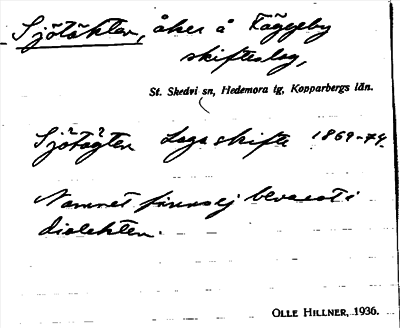 Sjötäkten, åker å Täggeby
skifteslag,
St. Skedvi sn, Hedemora tg, Kopparbergs län.
Sjötägten Laga skifte 1869-74.
Namnet finns ej bevarat i
dialekten.
OLLE HILLNER, 1936.